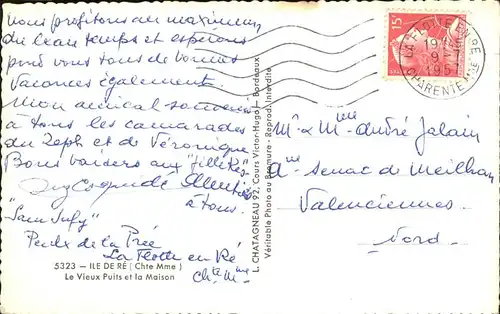 Nous profitons au maximum
du beau temps et espérons
pour vous tous de bonnes
Vacances également.
Mon amical souvenir
à tous les camarades
du Zeph et de Véronique
Bons baisers aux "fillettes"
à tous.
"Sam Sufy"
Peulx de la Prée
La Flotte en Ré
Chte Mme
5323 — ILE DE RÉ (Chte Mme)
Le Vieux Puits et la Maison
L. CHATAGNEAU 92, Cours Victor-Hugo - Bordeaux
Véritable Photo au Bromure - Reprod. Interdite
15F
LA FLOTTE EN RÉ
195
CHARENTE Mme
Mr & Mme André Jalain
Ave Senac de Meilhan
Valenciennes
Nord